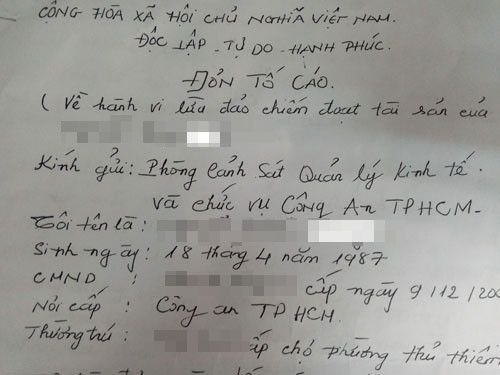 CỘNG HÒA XÃ HỘI CHỦ NGHĨA VIỆT NAM.
ĐỘC LẬP - TỰ DO - HẠNH PHÚC.
ĐƠN TỐ CÁO.
( Về hành vi lừa đảo chiếm đoạt tài sản của
Kính gửi: Phòng Cảnh Sát Quản lý Kinh tế.
và chức vụ CÔNG AN TPHCM-
Tôi tên là :
Sinh ngày : 18 tháng 4 năm 1987
CMND : cấp ngày 9/12/200
Nơi cấp : Công an TP HCM.
Thường trú : ấp chợ phường thủ thiêm